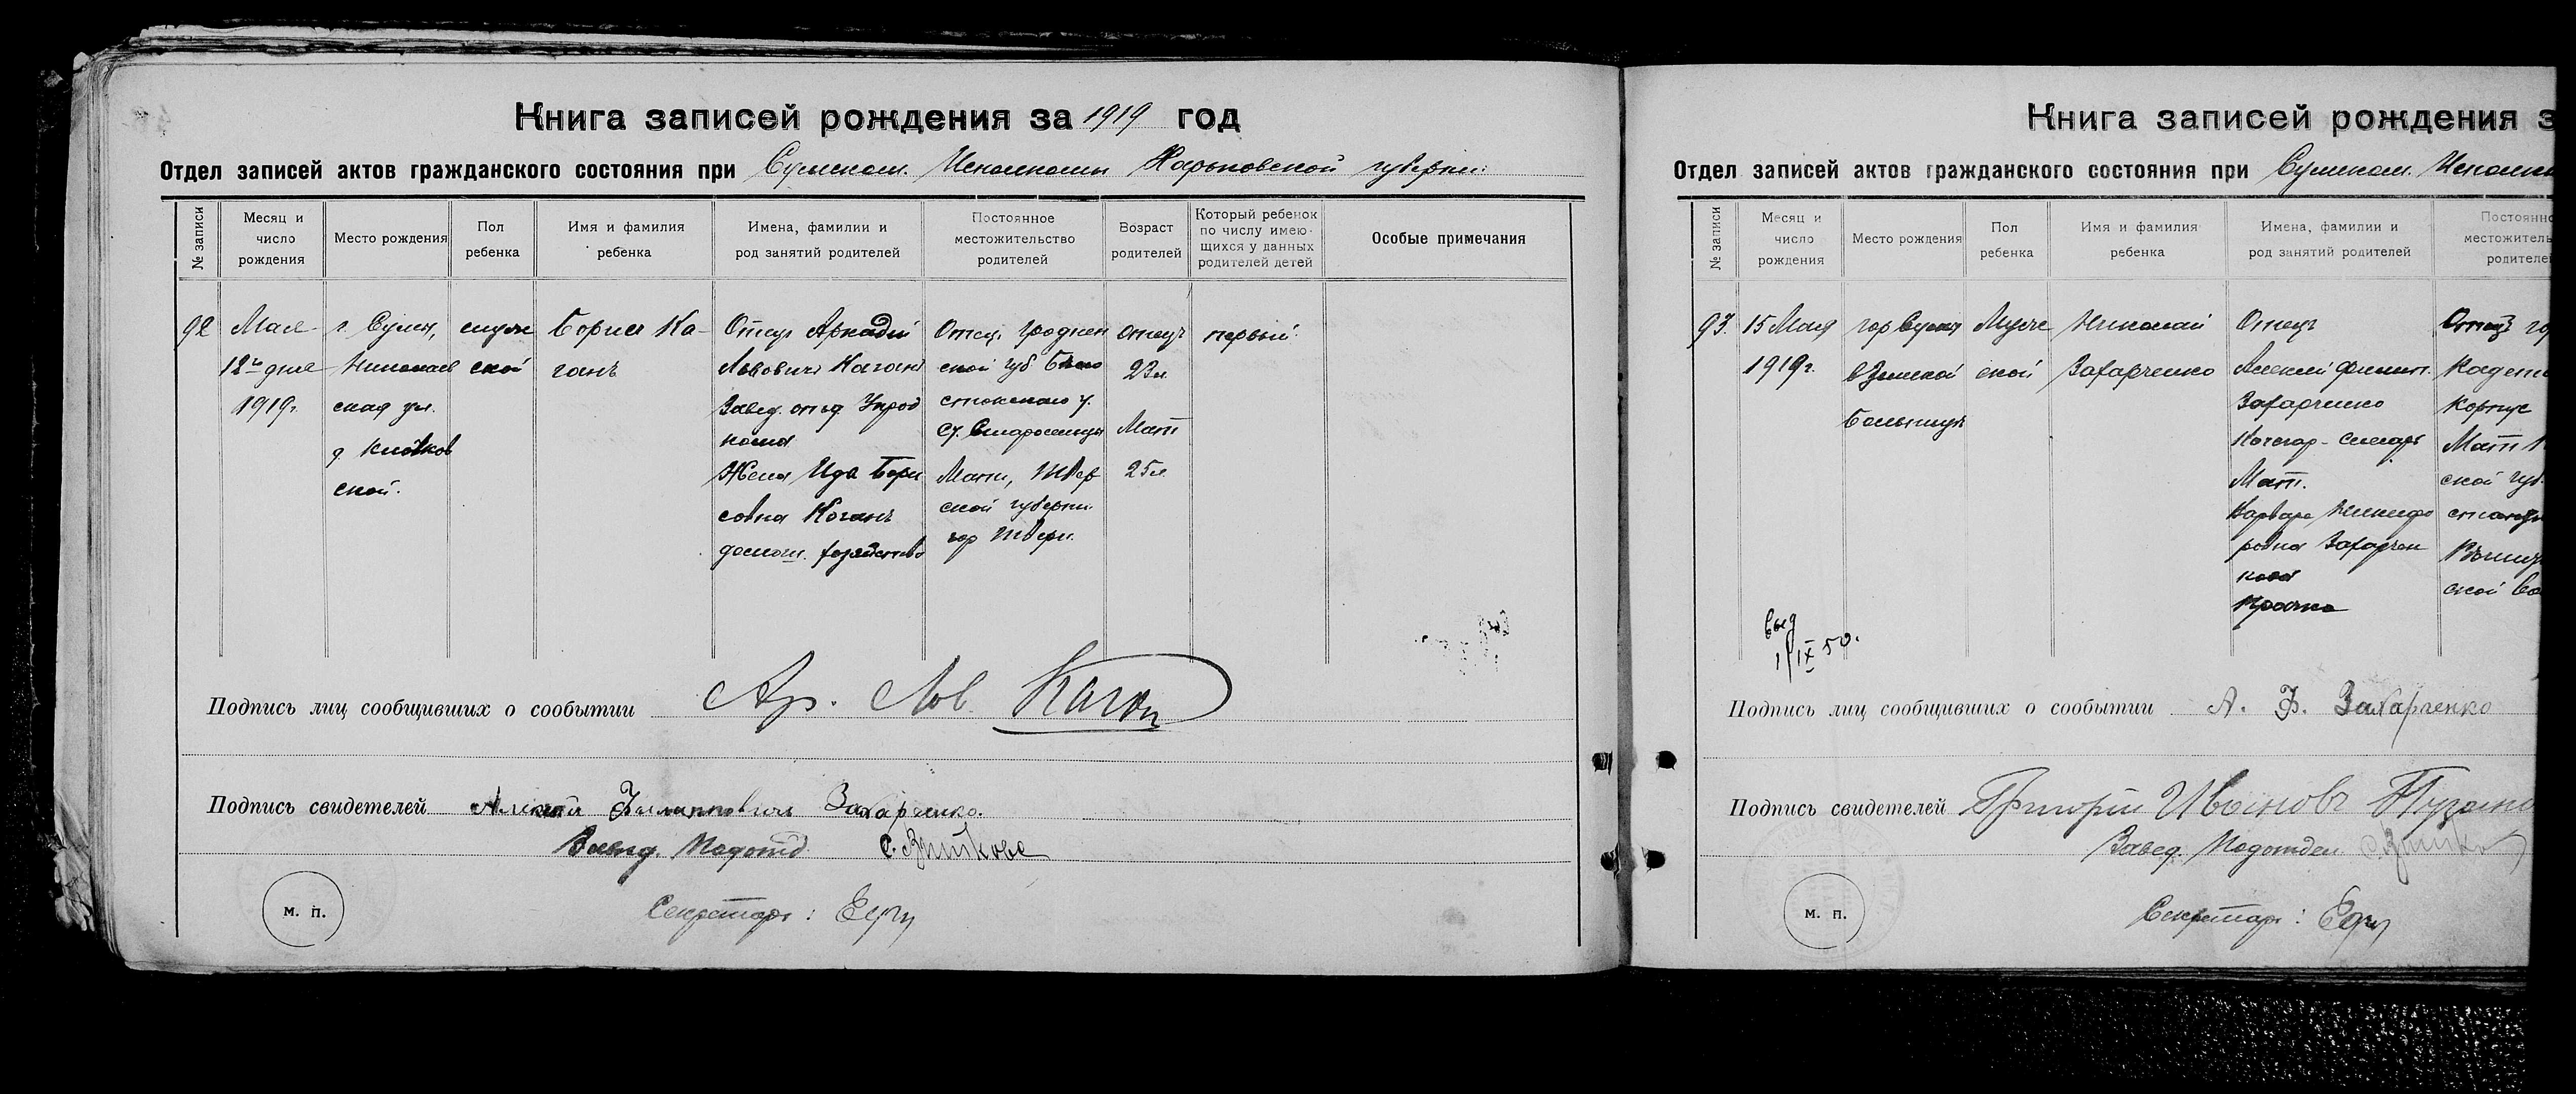 Книга записей рождения за 1919 год
Отдел записей актов гражданского состояния при Сумском. Исполкоми Харьковской губерни:
№ записи
Месяц и
число
рождения
Место рождения
Пол
ребенка
Имя и фамилия
ребенка
Имена, фамилии и
род занятий родителей
Постоянное
местожительство
родителей
Возраст
родителей
Который ребенок
по числу имею-
щихся у данных
родителей детей
Особые примечания
92
Мая
12го дня
1919г.
г. Сумы,
Николаев
ская ул.
ской.
муж
ской
Борис Ка-
ганъ
Отец Аркадий
Львович Каган
Завед. отд. Упрод
кома
Жена Ида Бори
совна Каганъ
домаш. хозяйство
Отец, Гроднен
ской губ Бело
стокского у.
Мать, Твер
ской губерни.
гор Твери.
отецъ
23л
Мать
25л
первый
Подпись лиц сообщивших о сообытии Ар. Льв Каган
Подпись свидетелей Алексей Филиппович Захарченко.
Завед. Подотд.
м. п.
Секретарь:
Книга записей рождения з
Отдел записей актов гражданского состояния при Сумском. Исполк
№ записи
Месяц и
число
рождения
Место рождения
Пол
ребенка
Имя и фамилия
ребенка
Имена, фамилии и
род занятий родителей
Постоянно
местожитель
родителе
93.
15 Мая
1919г.
гор Сумы
в Земской
Больнице
Муж
ской
Николай
Захарченко
Отецъ
Алексей Филип.
Захарченко
Кочегар-слесарь
Мать.
Варвара Никифо
ровна Захарчен
кова
Прачка
Отец го
Кадетс
Корпус
Мать
ской губ.
ской во
1/IX 50.
Подпись лиц сообщивших о сообытии А. Ф. Захарченко
Подпись свидетелей Григорий Иванов
Завед. Подотдел
м. п.
Секретарь: